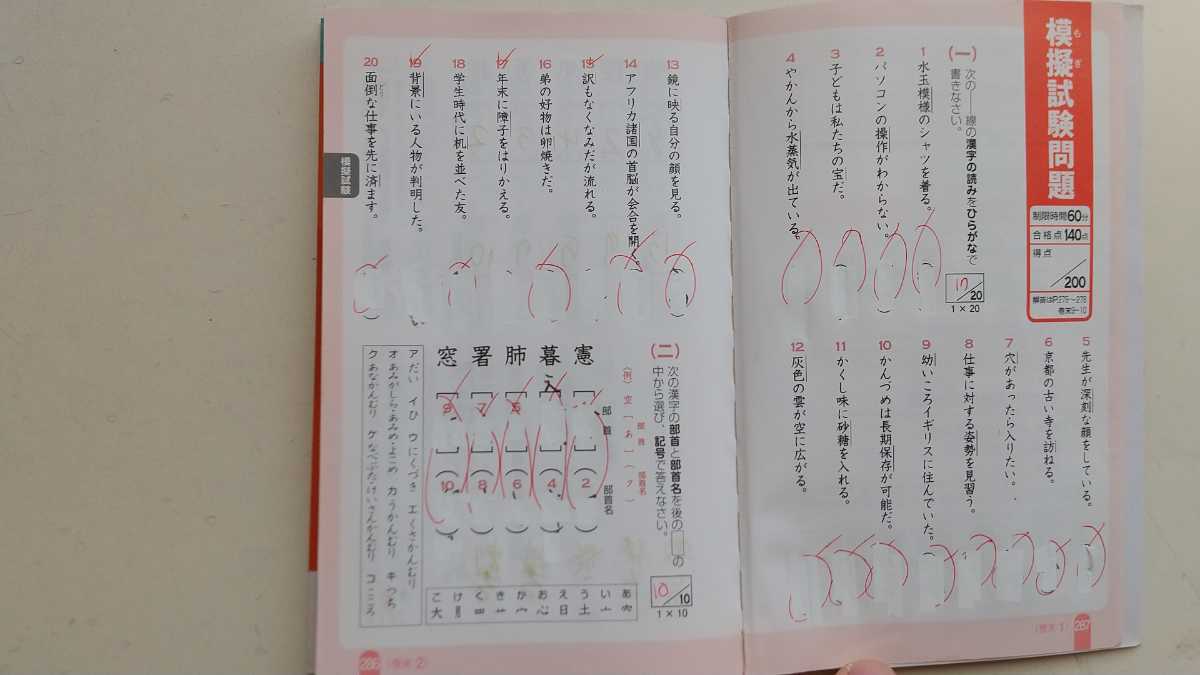 模擬試験問題
も ぎ
制限時間60分
合格点140点
得点
/200
解答はP.275〜278
巻末9−10
(一) 次の──線の漢字の読みをひらがなで
書きなさい。
10/20
1×20
1 水玉模様のシャツを着る。
2 パソコンの操作がわからない。
3 子どもは私たちの宝だ。
4 やかんから水蒸気が出ている。
5 先生が深刻な顔をしている。
6 京都の古い寺を訪ねる。
7 穴があったら入りたい。
8 仕事に対する姿勢を見習う。
9 幼いころイギリスに住んでいた。
10 かんづめは長期保存が可能だ。
11 かくし味に砂糖を入れる。
12 灰色の雲が空に広がる。
〈巻末1〉 287
13 鏡に映る自分の顔を見る。
14 アフリカ諸国の首脳が会合を開く。
15 訳もなくなみだが流れる。
16 弟の好物は卵焼きだ。
17 年末に障子をはりかえる。
18 学生時代に机を並べた友。
19 背景にいる人物が判明した。
20 面倒な仕事を先に済ます。
どう
模擬試験
(二) 次の漢字の部首と部首名を後の□の
中から選び、記号で答えなさい。
10/10
1×10
部首 部首名
〈例〉空[あ](ク)
部首 部首名
憲[1](2)
暮[3](4)
肺[5](6)
署[7](8)
窓[9](10)
あ 穴
い 亠
う 土
え 日
お 心
か 宀
き 艹
く 罒
け 月
こ 大
ア だい イ ひ ウ にくづき エ くさかんむり
オ あみがしら・あみめ・よこめ カ うかんむり キ つち
ク あなかんむり ケ なべぶた・けいさんかんむり コ こころ
286 〈巻末2〉